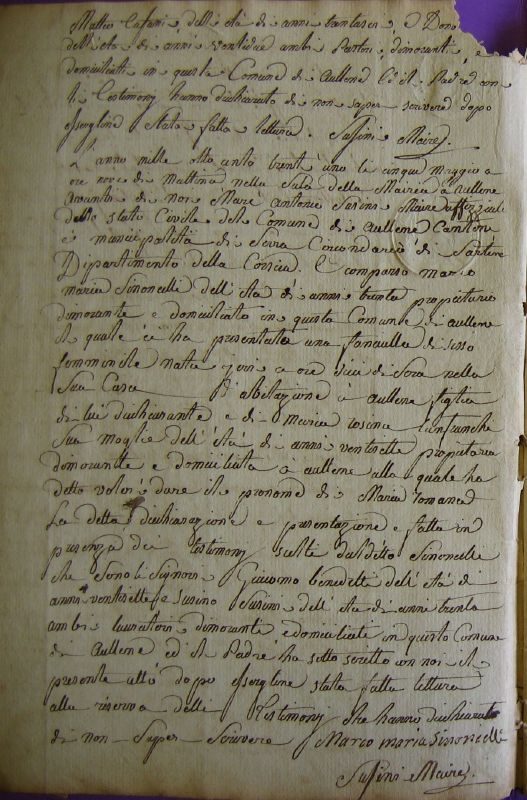 Matteo Cafani dell'età di anni trentasei e Dono
dell'età di anni ventidue ambi Pastori dimoranti e
domiciliati in questo Comune di Aullene ed il Padre con
li Testimonj hanno dichiarato di non saper scrivere dopo
essergline stata fatta lettura. Susini Maire
L'anno mille otto cento trent'uno li cinque maggio a
ore nove di mattina nella Sala della Mairia a Aullene
Avanti di noi Marc' antonio Susini Maire uffizziale
dello stato Civile del Comune di Aullene Cantone
e municipalità di Serra Circondario di Sartene
Dipartimento della Corsica. È comparso marco
maria Simonelli dell'età di anni trenta propietario
dimorante e domiciliato in questo Comune di aullene
il quale ci ha presentato una fanciulla di sesso
femminile nata jeri a ore dieci di Sera nella
Sua Casa D'abitazione a aullene figlia
di lui dichiarante e di Maria rosina Lanfranchi
Sua moglie dell'età di anni ventisette propietaria
dimorante e domiciliata a aullene alla quale ha
detto voler dare il pronome di Maria romana
La detta dichiarazione e presentazione è fatta in
presenza dei testimonj scelti dal detto Simonelli
che Sono li Signori Giacomo benedetti dell'età di
anni ventisette e Susino Susini dell'età di anni trenta
ambi lavoratori dimoranti e domiciliati in questo Comune
di Aullene ed il Padre ha sotto scritto con noi il
presente atto doppo essergline stata fatta lettura
alla riserva delli Testimonj che hanno dichiarato
di non Saper Scrivere Marco maria Simonelli
Susini Maire